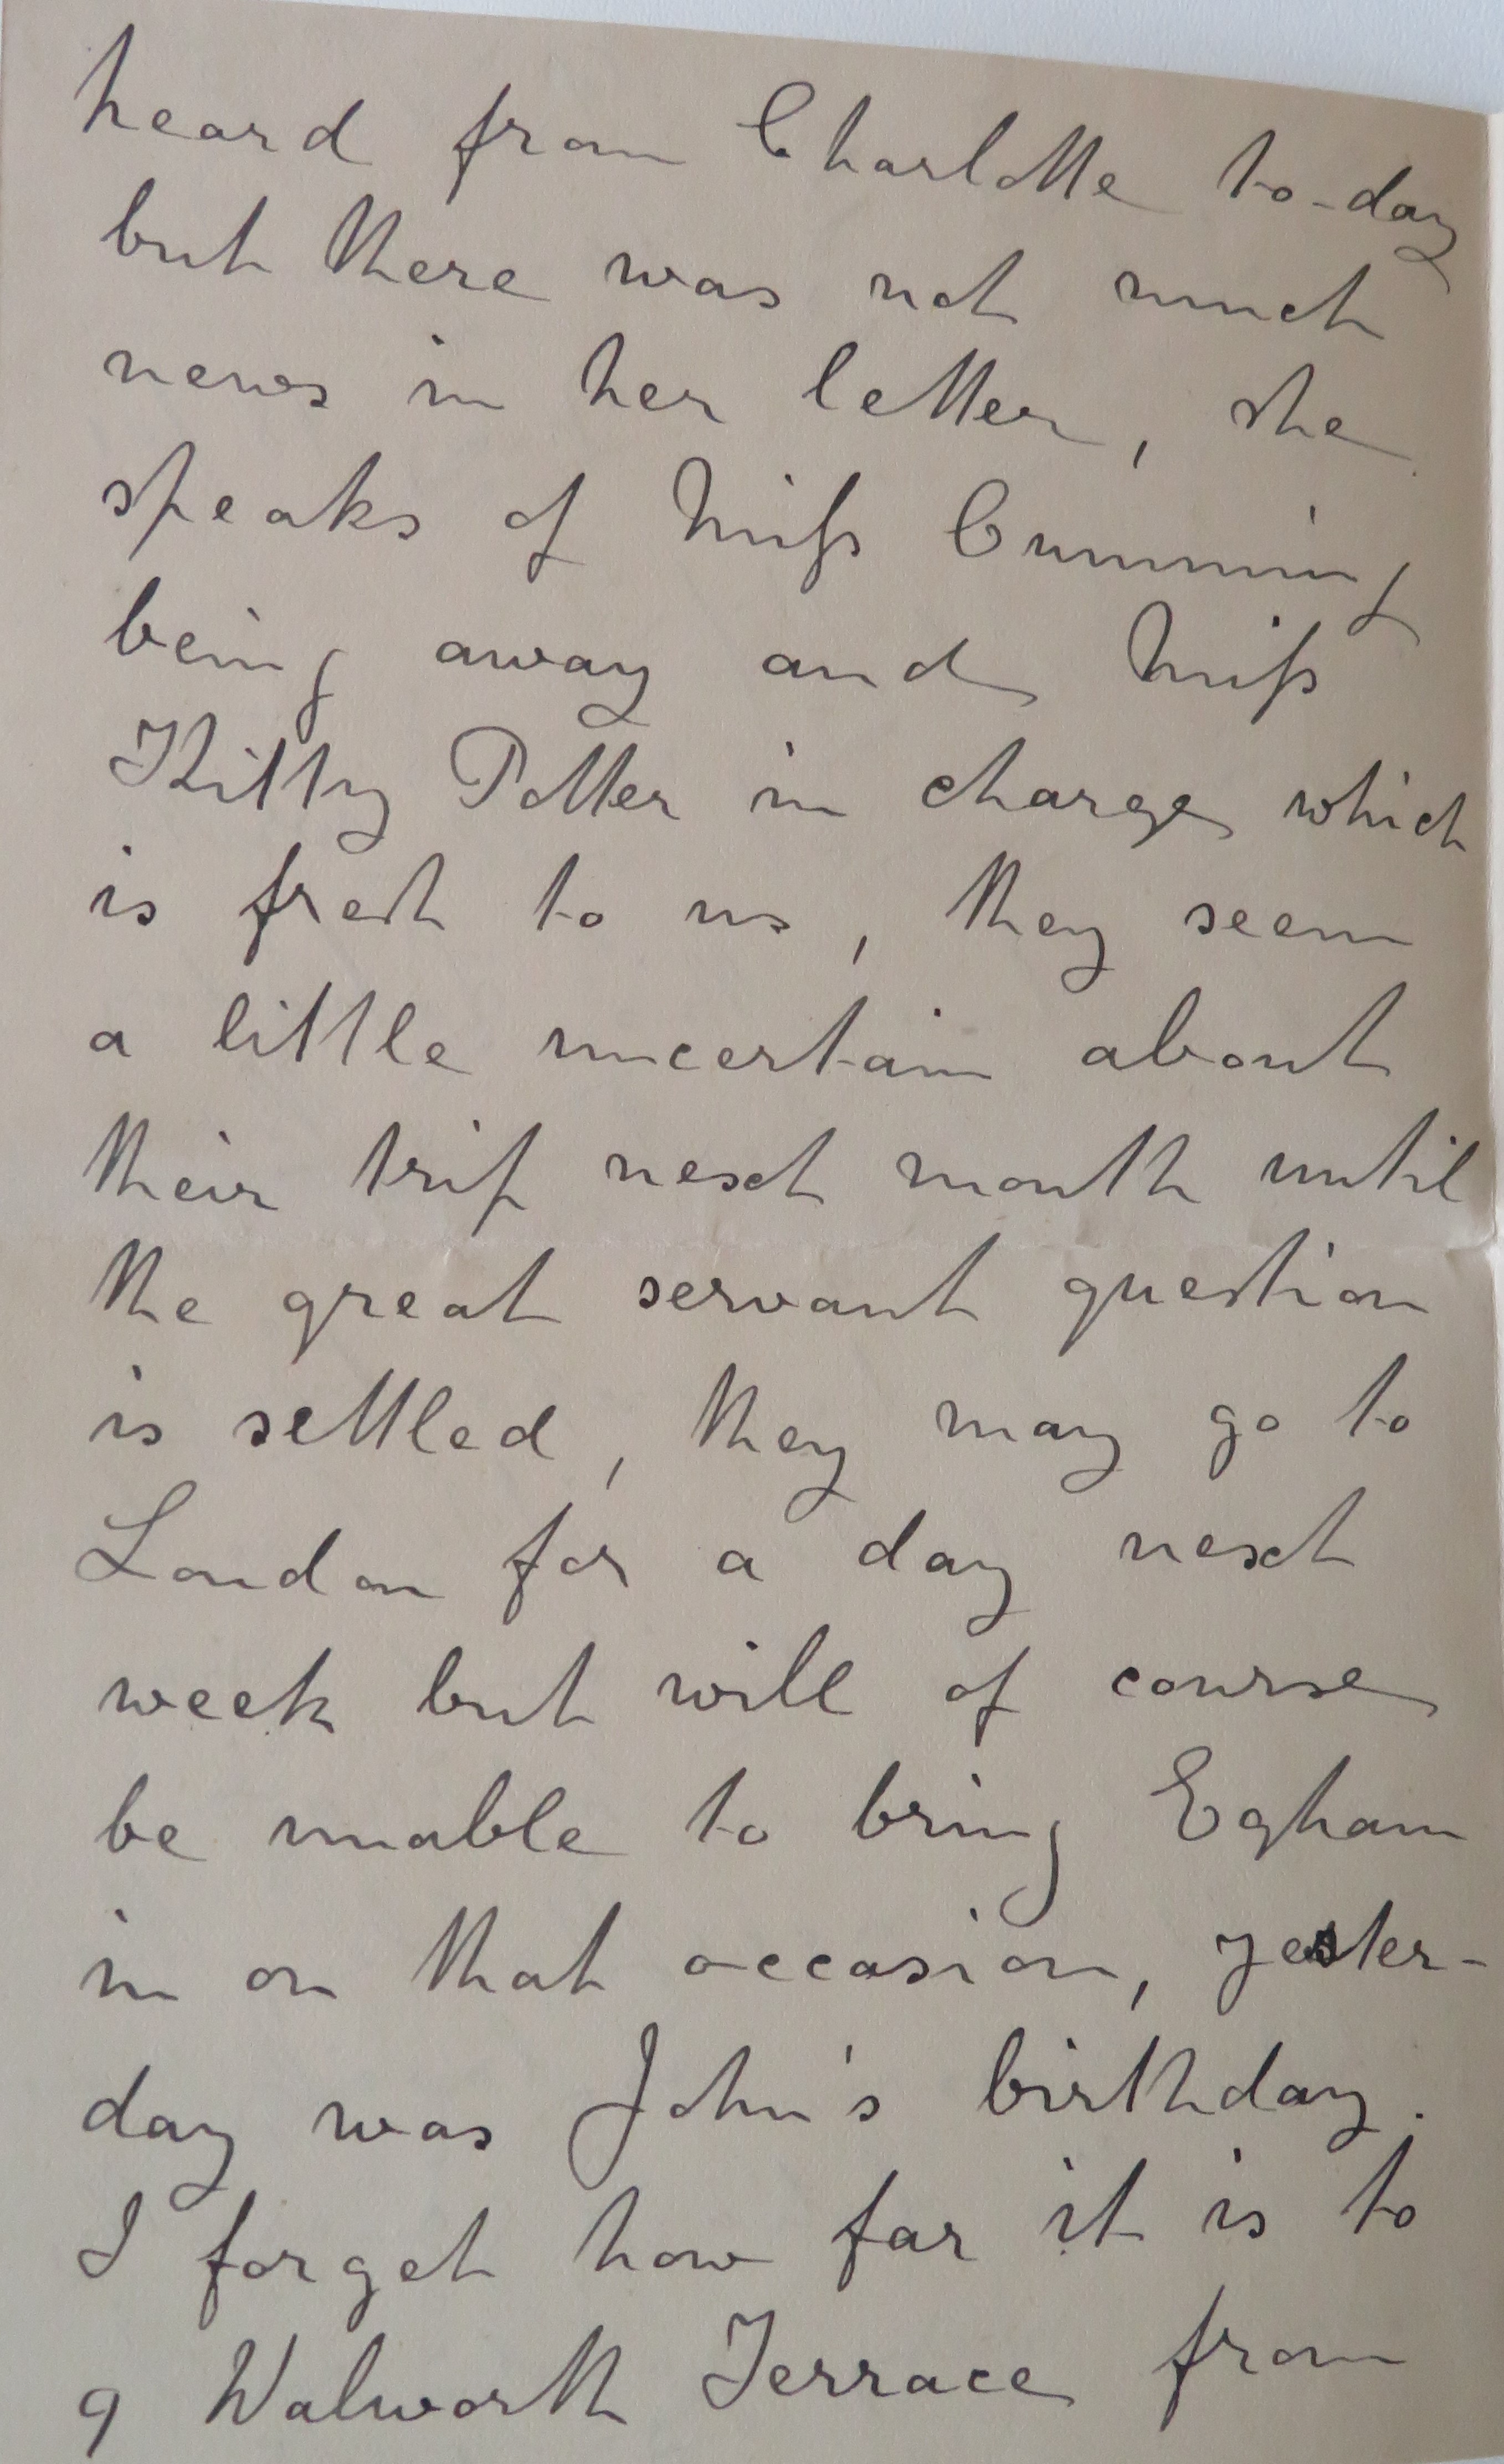 heard from Charlotte to-day
but there was not much
news in her letter, she
speaks of Miſs Cumming
being away and Miſs
Kitty Potter in charge which
is fresh to us, they seem
a little uncertain about
their trip next month until
the great servant question
is settled, they may go to
London for a day next
week but will of course
be unable to bring Egham
in on that occasion, yester-
day was John's birthday.
I forget how far it is to
9 Walworth Terrace from